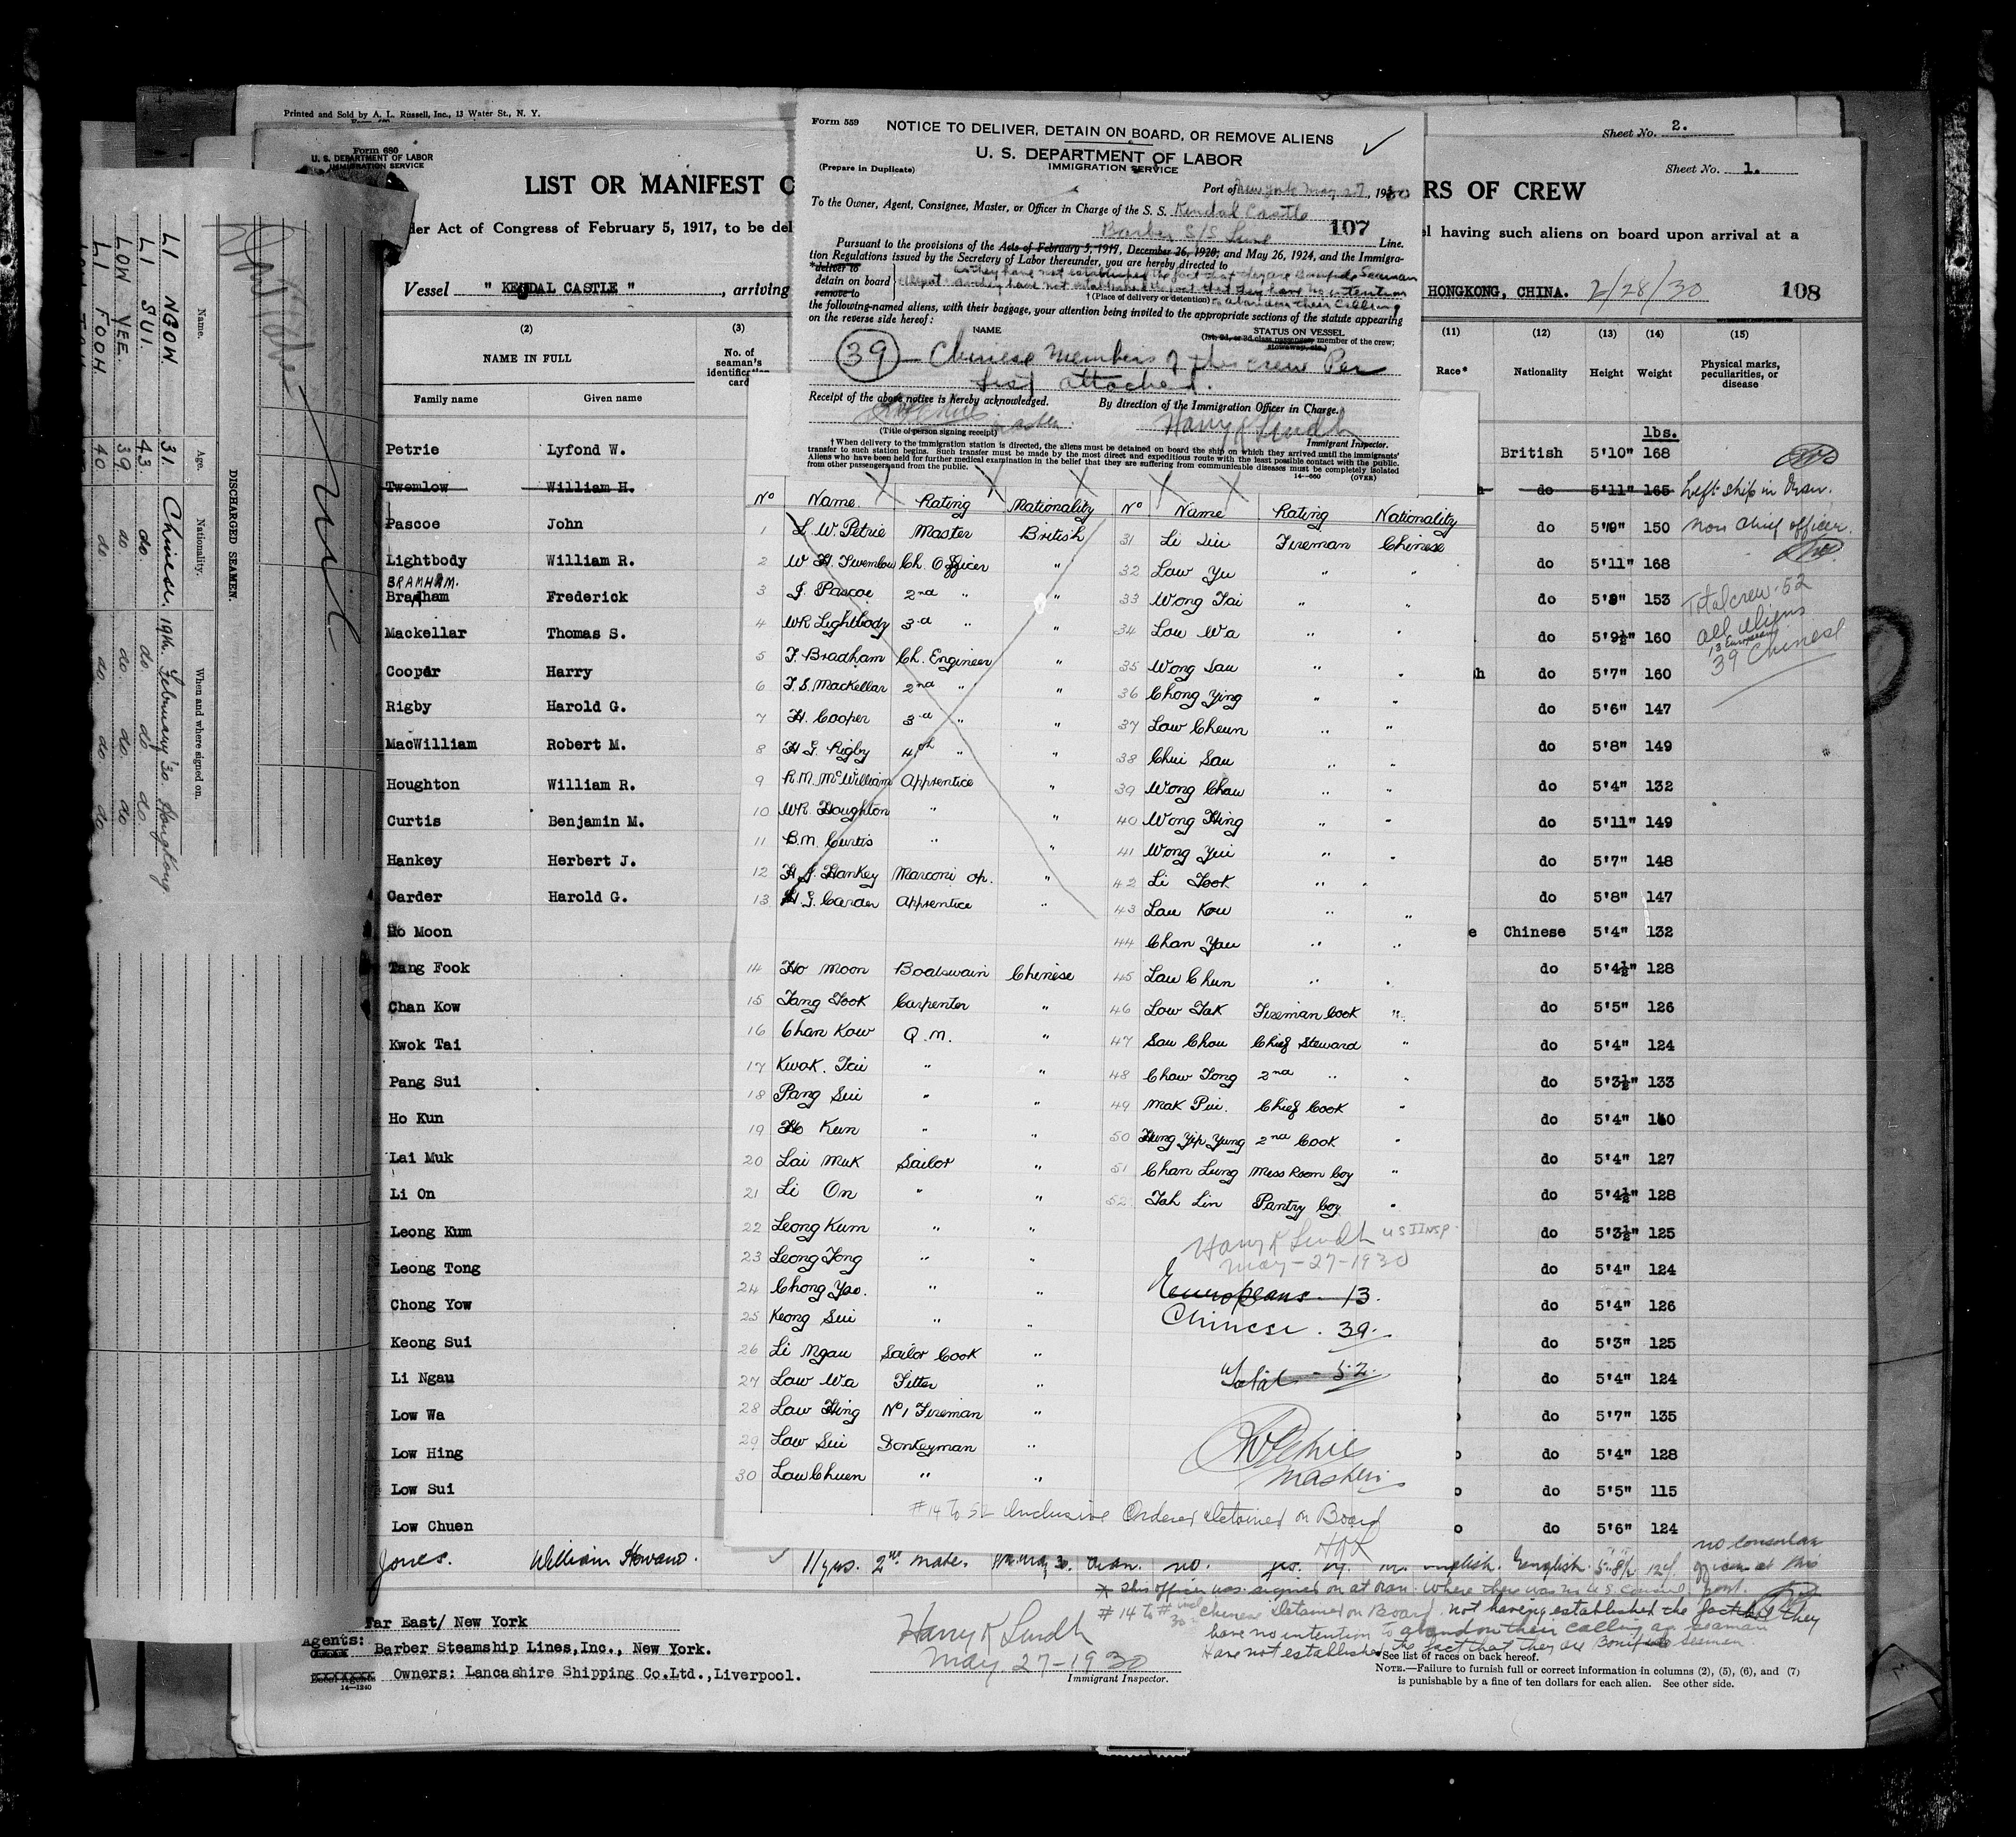 Printed and Sold by A. L. Russell, Inc., 13 Water St., N. Y.
Sheet No. 2.
Form 680
U. S. DEPARTMENT OF LABOR
IMMIGRATION SERVICE
Sheet No. 1.
LIST OR MANIFEST
RS OF CREW
der Act of Congress of February 5, 1917, to be del
el having such aliens on board upon arrival at a
Vessel " KENDAL CASTLE ", arriving
HONGKONG, CHINA. 2/28/30 108
Form 559
NOTICE TO DELIVER, DETAIN ON BOARD, OR REMOVE ALIENS
U. S. DEPARTMENT OF LABOR
IMMIGRATION SERVICE
(Prepare in Duplicate)
Port of New York May 27, 1930
To the Owner, Agent, Consignee, Master, or Officer in Charge of the S. S. Kendal Castle
Barber S/S Line 107 Line.
Pursuant to the provisions of the Acts of February 5, 1917, December 26, 1920, and May 26, 1924, and the Immigra-
tion Regulations issued by the Secretary of Labor thereunder, you are hereby directed to
*deliver to
detain on board
remove to
as they have not established the fact that they are Bonafide Seaman
and they have not established the fact that they have no intention
† (Place of delivery or detention) to abandon their calling
the following-named aliens, with their baggage, your attention being invited to the appropriate sections of the statute appearing
on the reverse side hereof:
NAME STATUS ON VESSEL
(1st, 2d, or 3d class passenger, member of the crew;
stowaway, etc.)
39 — Chinese members of the crew Per
list attached.
Receipt of the above notice is hereby acknowledged. By direction of the Immigration Officer in Charge.
Master Harry K Lindh
(Title of person signing receipt) Immigrant Inspector.
† When delivery to the immigration station is directed, the aliens must be detained on board the ship on which they arrived until the immigrants'
transfer to such station begins. Such transfer must be made by the most direct and expeditious route with the least possible contact with the public.
Aliens who have been held for further medical examination in the belief that they are suffering from communicable diseases must be completely isolated
from other passengers and from the public.
14—660 (OVER)
(2) (3)
NAME IN FULL No. of seaman's identification card
Family name Given name
Petrie Lyfond W.
Twemlow William H.
Pascoe John
Lightbody William R.
BRAMHAM.
Bradham Frederick
Mackellar Thomas S.
Cooper Harry
Rigby Harold G.
MacWilliam Robert M.
Houghton William R.
Curtis Benjamin M.
Hankey Herbert J.
Carder Harold G.
Ho Moon
Tang Fook
Chan Kow
Kwok Tai
Pang Sui
Ho Kun
Lai Muk
Li On
Leong Kum
Leong Tong
Chong Yow
Keong Sui
Li Ngau
Low Wa
Low Hing
Low Sui
Low Chuen
No Name Rating Nationality
1 L. W. Petrie Master British
2 W H. Twemlow Ch. Officer "
3 J. Pascoe 2nd " "
4 WR Lightbody 3rd " "
5 F. Bradham Ch. Engineer "
6 T. S. Mackellar 2nd " "
7 H. Cooper 3rd " "
8 H G. Rigby 4th " "
9 R.M. McWilliam Apprentice "
10 WR Houghton " "
11 B.M. Curtis " "
12 H. J. Hankey Marconi op. "
13 H. G. Carder Apprentice "
14 Ho Moon Boatswain Chinese
15 Tang Fook Carpenter "
16 Chan Kow Q.M. "
17 Kwok. Tai " "
18 Pang Sui " "
19 Ho Kun " "
20 Lai Muk Sailor "
21 Li On " "
22 Leong Kum " "
23 Leong Tong " "
24 Chong Yao. " "
25 Keong Sui " "
26 Li Ngau Sailor Cook "
27 Law Wa Fitter "
28 Law Hing No 1 Fireman "
29 Law Sui Donkeyman "
30 Law Chuen " "
No Name Rating Nationality
31 Li Siu Fireman Chinese
32 Law Yu " "
33 Wong Tai " "
34 Lou Wa " "
35 Wong Sau " "
36 Chong Ying " "
37 Law Cheun " "
38 Chui Sau " "
39 Wong Chaw " "
40 Wong Hing " "
41 Wong Yui " "
42 Li Fook " "
43 Lau Kow " "
44 Chan Yau " "
45 Law Chun " "
46 Low Tak Fireman Cook "
47 Sau Chou Chief Steward "
48 Chow Tong 2nd " "
49 Mak Pui. Chief Cook "
50 Hung Yip Yung 2nd Cook "
51 Chan Lung Mess Room Boy "
52 Tah Lin Pantry boy "
Harry K Lindh U S I INSP.
May-27-1930
Europeans. 13.
Chinese. 39.
Total - 52.
Master.
#14 to 52 Inclusive Ordered detained on Board
HKL
(11) (12) (13) (14) (15)
Race* Nationality Height Weight Physical marks, peculiarities, or disease
lbs.
British 5'10" 168
do 5'11" 165 Left ship in Oran.
do 5'9" 150 Now chief officer.
do 5'11" 168
do 5'8" 153
do 5'9½" 160
do 5'7" 160
do 5'6" 147
do 5'8" 149
do 5'4" 132
do 5'11" 149
do 5'7" 148
do 5'8" 147
Chinese 5'4" 132
do 5'4½" 128
do 5'5" 126
do 5'4" 124
do 5'3½" 133
do 5'4" 140
do 5'4" 127
do 5'4½" 128
do 5'3½" 125
do 5'4" 124
do 5'4" 126
do 5'3" 125
do 5'4" 124
do 5'7" 135
do 5'4" 128
do 5'5" 115
do 5'6" 124
Total crew-52
all aliens
13 European
39 Chinese
Jones. William Howard. 11 yrs. 2nd mate. Oran. no. yes. English. English. 5-8½
no consular
officer at this
port.
* This officer was signed on at Oran where there was no U.S. Consul
#14 to #30 incl Chinese detained on Board not having established the fact that they
have no intention to abandon their calling as seaman
Have not established the fact that they are Bonifide Seamen
Far East/ New York
Agents: Barber Steamship Lines,Inc., New York.
Owners: Lancashire Shipping Co.Ltd.,Liverpool.
14—1240
Harry K Lindh
May 27-1930
Immigrant Inspector.
*See list of races on back hereof.
NOTE.—Failure to furnish full or correct information in columns (2), (5), (6), and (7)
is punishable by a fine of ten dollars for each alien. See other side.
DISCHARGED SEAMEN.
Name. Age. Nationality. When and where signed on.
LI NGOW. 31. Chinese. 19th. February '30 Hongkong.
LI SUI. 43. do. do. do. do.
LOW YEE. 39 do. do. do. do
LI FOOH. 40. do. do. do. do